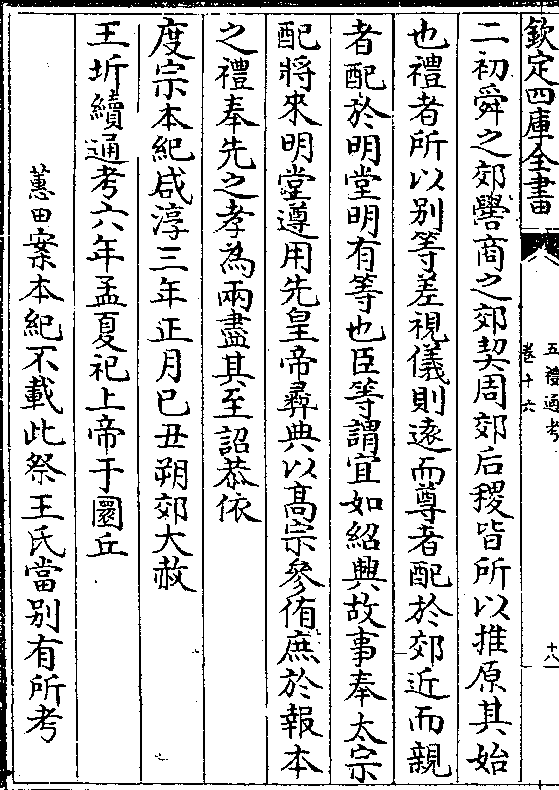 欽定四庫全書
五禮通考
卷十六
十八
二初舜之郊嚳商之郊契周郊后稷皆所以推原其始
也禮者所以别等差視儀則逺而尊者配於郊近而親
者配於明堂明有等也臣等謂宜如紹興故事奉太宗
配將來明堂遵用先皇帝彛典以髙宗參侑庶於報本
之禮奉先之孝為兩盡其至詔恭依
度宗本紀咸淳三年正月己丑朔郊大赦
王圻續通考六年孟夏祀上帝于圜丘
蕙田案本紀不載此祭王氏當别有所考